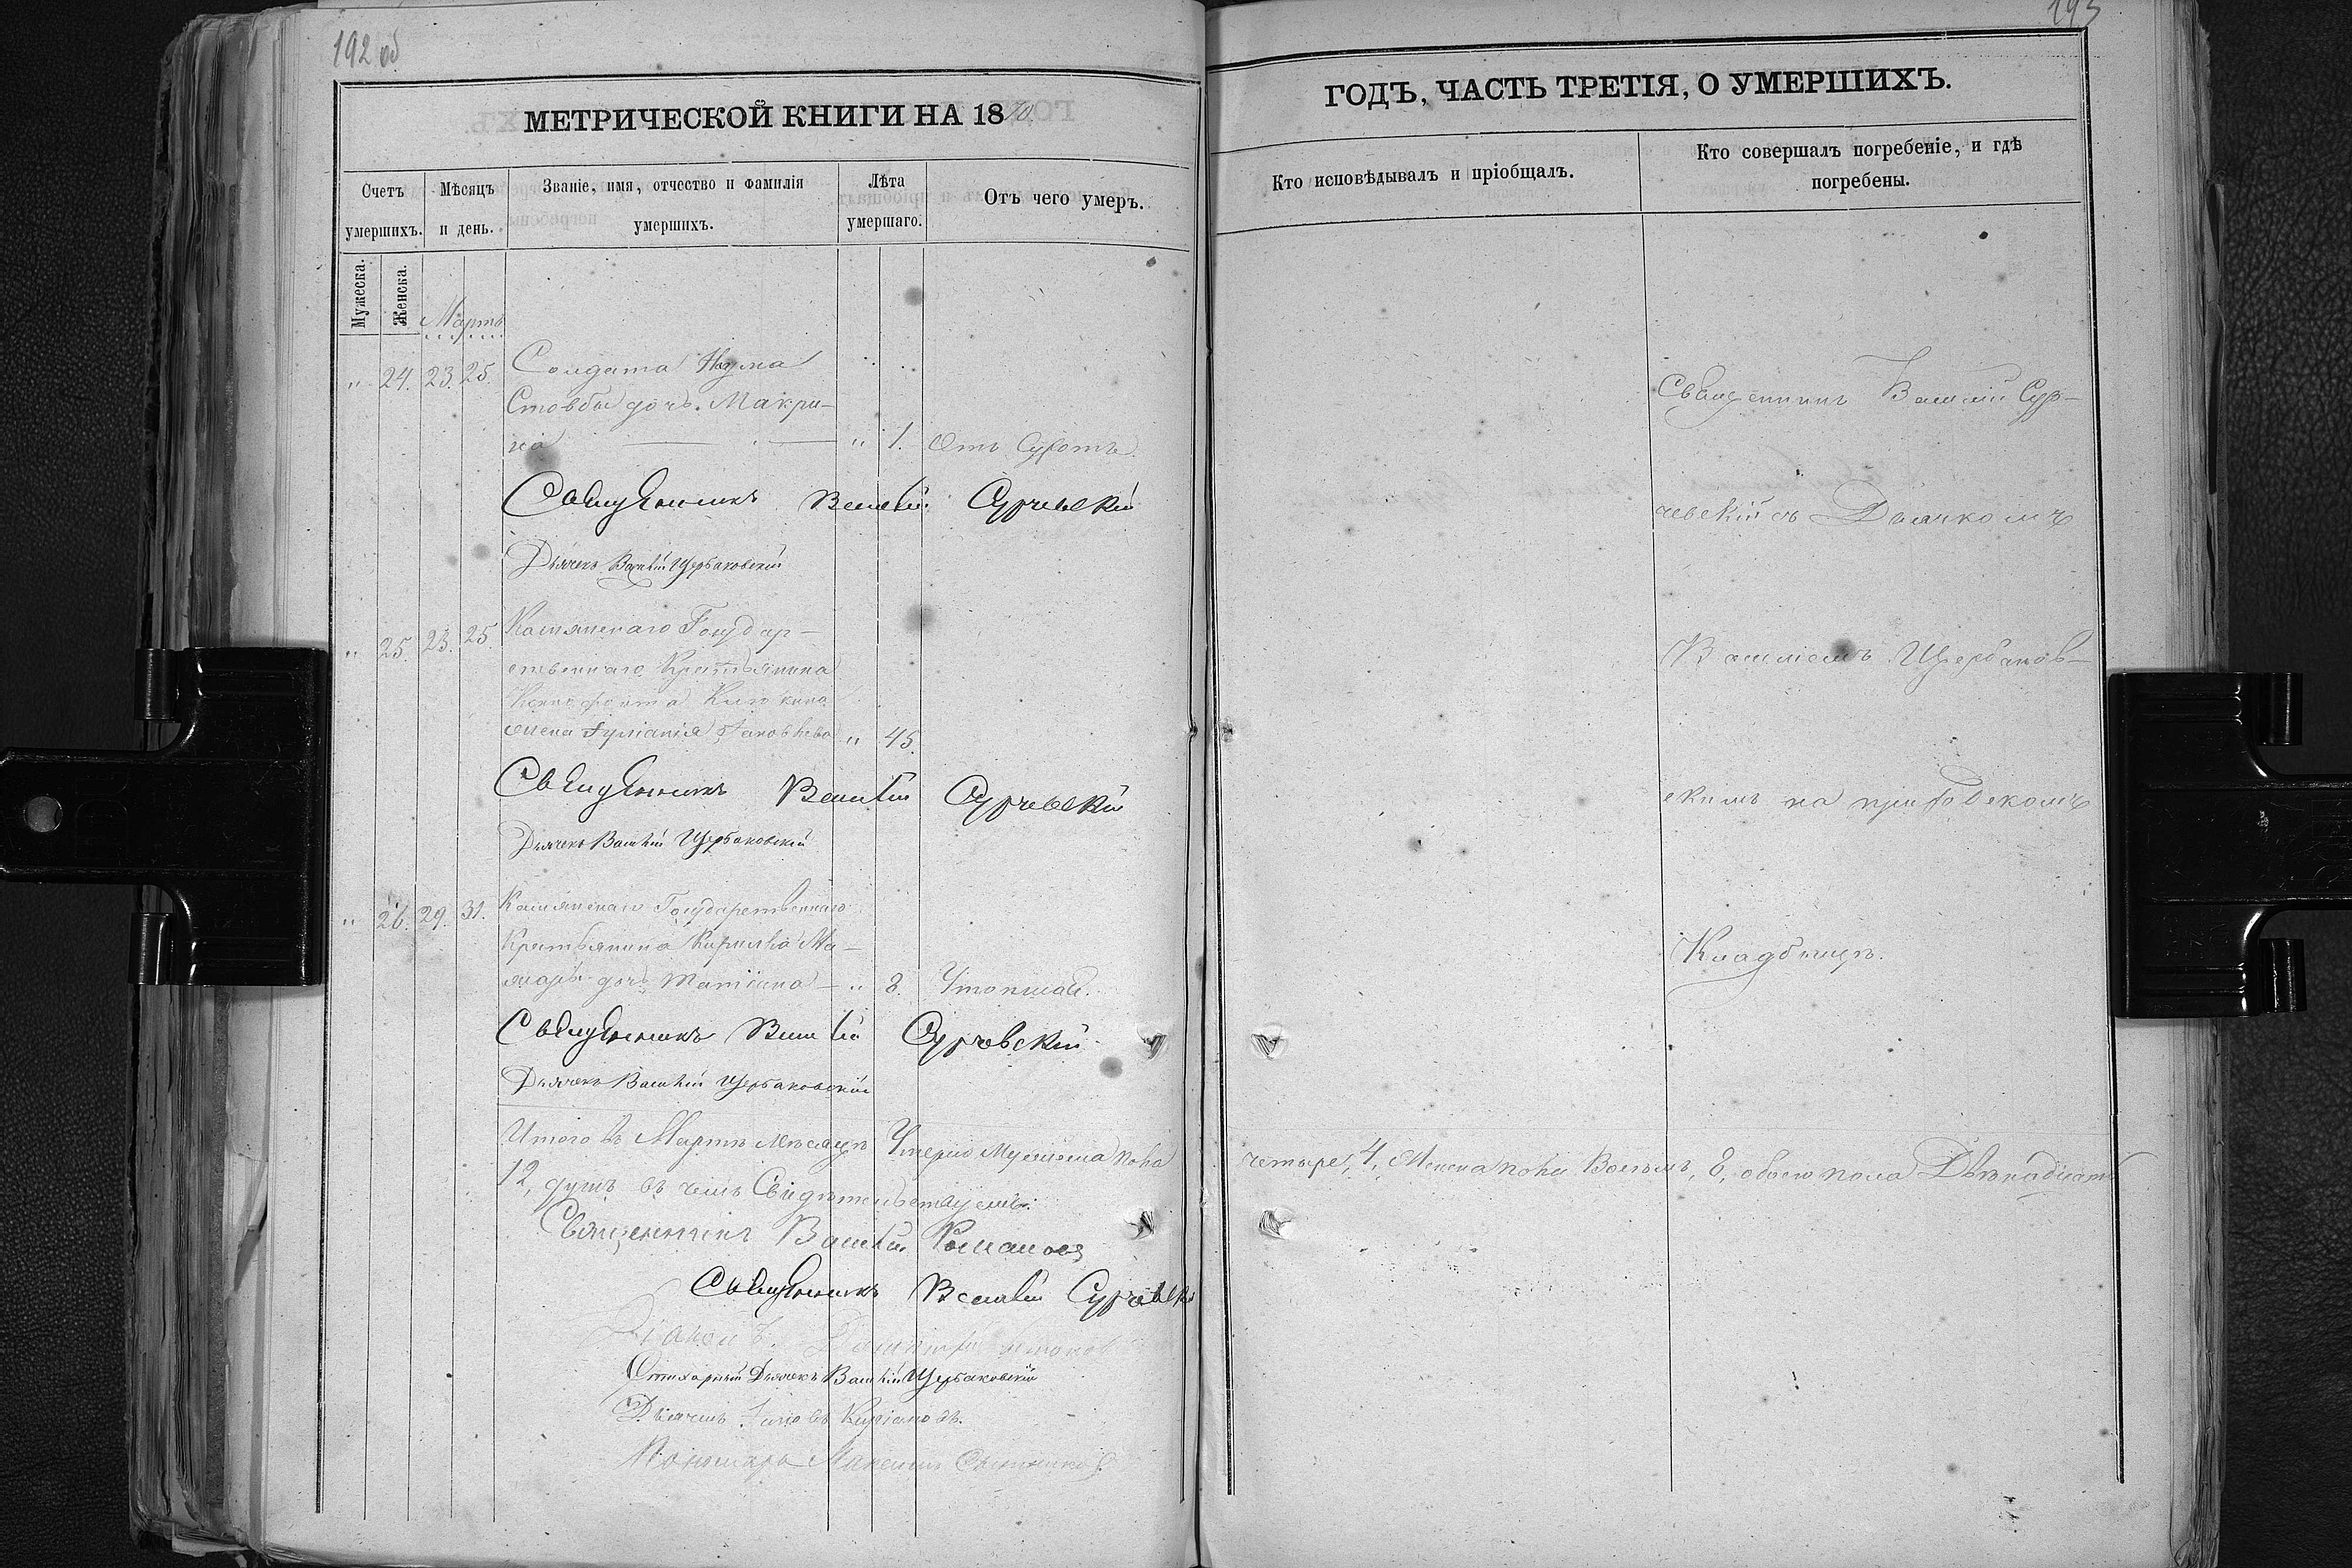 192 об
МЕТРИЧЕСКОЙ КНИГИ НА 1870
Счетъ умершихъ.
Мѣсяцъ и день.
Званіе, имя, отчество и фамилія умершихъ.
Лѣта умершаго.
Отъ чего умеръ.
Мужеска.
Женска.
Мартъ
" 24. 23. 25. Солдата Наума
Стовбы дочь Макри-
на " 1. Отъ Сухотъ.
Священникъ Василій Сурчевскій
Дьячекъ Василій Щербаковскій
" 25. 23. 25. Государ-
ственнаго Крестьянина
Ксенофонта
жена Іуліанія Яковлева " 45.
Священникъ Василій Сурчевскій
Дьячекъ Василій Щербаковскій
" 26. 29. 31. Государственнаго
Крестьянина Кирилла
дочь Татіана " 8. Утопшая.
Священникъ Василій Сурчевскій
Дьячекъ Василій Щербаковскій
Итого въ Мартѣ мѣсяцѣ Умерло Мужеска пола
12, душъ въ чемъ Свидѣтельствуемъ:
Священникъ Василій Романовъ
Священникъ Василій Сурчевскій
Діаконъ
Стихарный Дьячекъ Василій Щербаковскій
Дьячекъ
Пономарь Максимъ
193
ГОДЪ, ЧАСТЬ ТРЕТІЯ, О УМЕРШИХЪ.
Кто исповѣдывалъ и пріобщалъ.
Кто совершалъ погребеніе, и гдѣ погребены.
Священникъ Василій Сур-
чевскій съ Дьячкомъ
Василіемъ Щербаков-
скимъ на приходскомъ
Кладбищѣ.
четыре, 4, Женска пола Восемь, 8, обоего пола Двѣнадцать